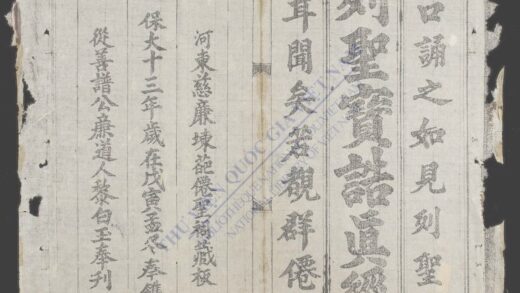 口誦之如見列聖
列聖寳誥眞經
耳聞矣若觀群僊
河東慈廉垺葩僊聖祠藏板
保大十三年歲在戊寅孟冬奉鐫
從善譜公廉道人黎白玉奉刊
THƯ VIỆN QUỐC GIA VIỆT NAM
NATIONAL LIBRARY OF VIETNAM